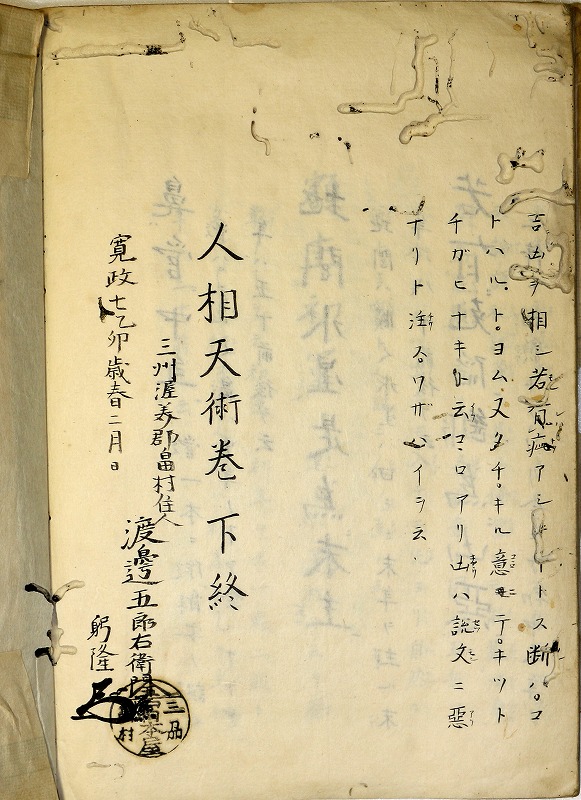 吉凶ヲ相シ若有疵アシ トス断ハコ
トハルトヨム又タチキル意モテキツト
チガヒナキト云コヽロアリ凶ハ説文ニ惡
ナリト注スワザハイヲ云
人相天術巻下終
三州渥美郡畠村住人
寛政七乙卯歳春二月日
渡邉五郎右衛門
躬隆
三州
橋本屋
村